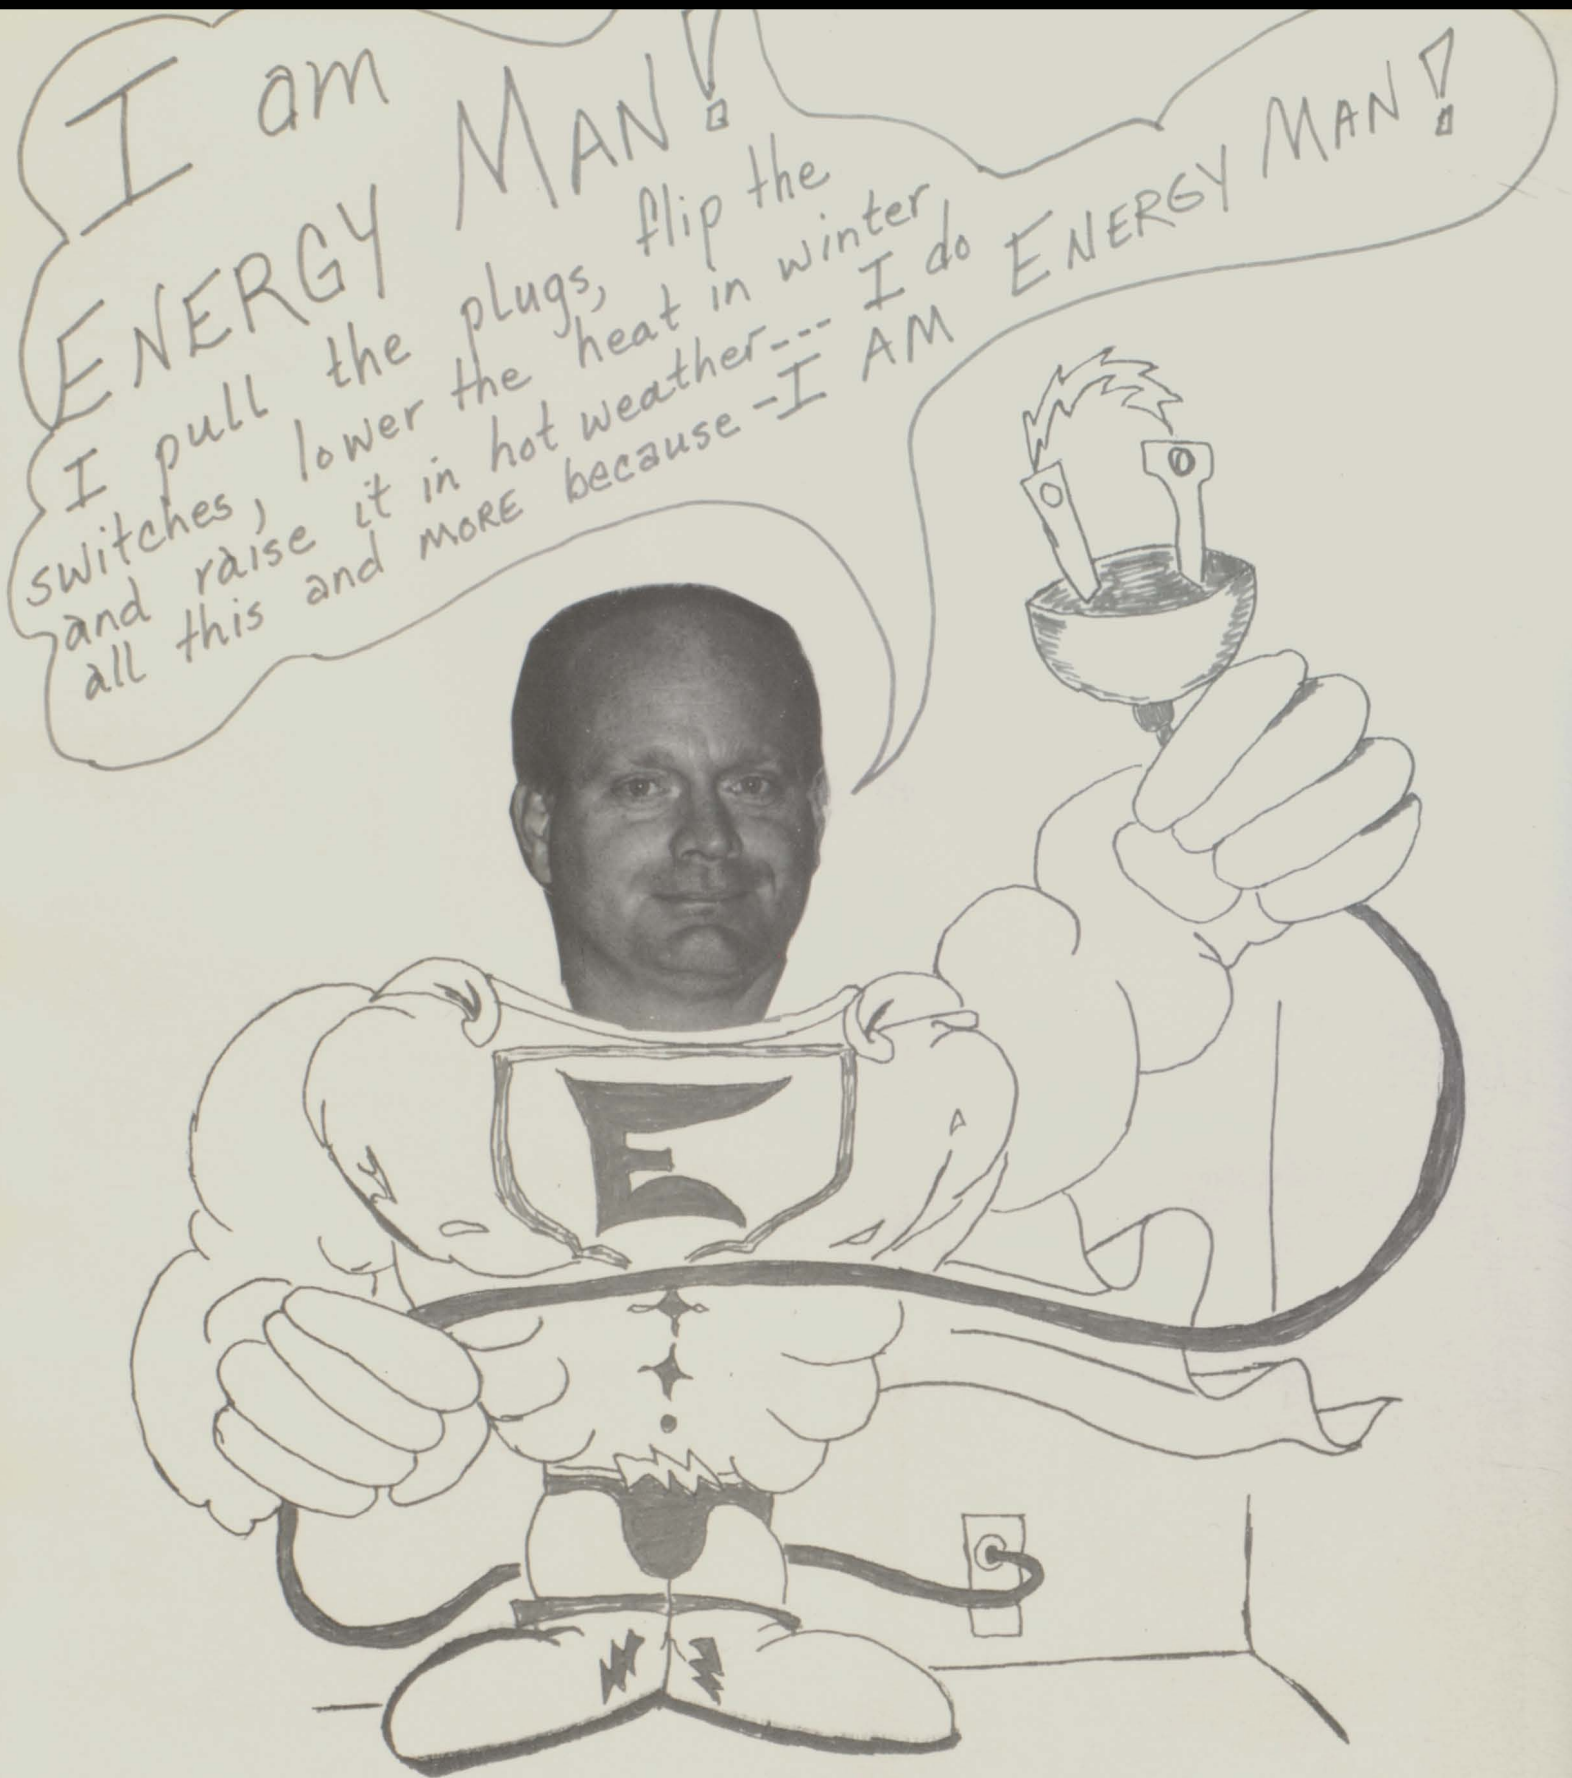 I am
ENERGY MAN!
I pull the plugs, flip the
switches, lower the heat in winter,
and raise it in hot weather--- I do
all this and MORE because - I AM ENERGY MAN!
E